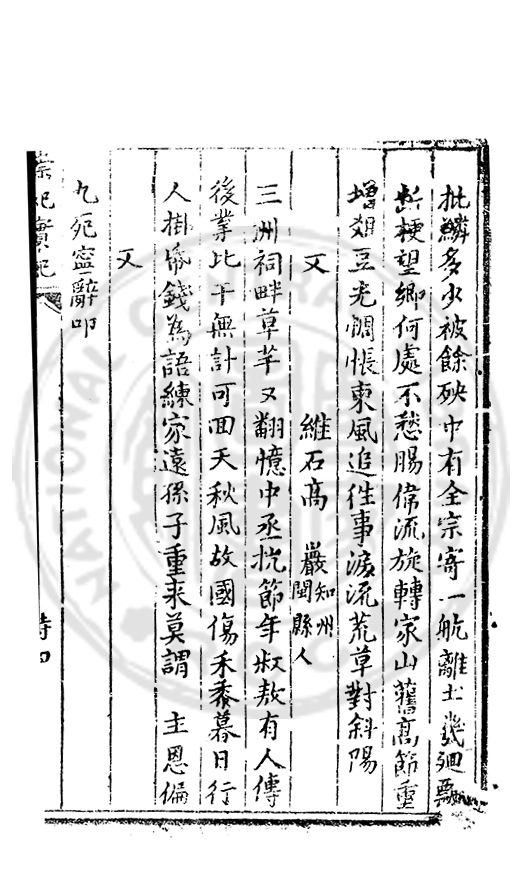 批鱗多少被餘殃中有全宗寄一航離土幾廻飄
斷梗望鄉何處不愁腸偉流旋轉家山舊高節重
增俎豆光惆悵東風追往事淚流荒草對斜陽
又　維石高　嚴知州閩縣人
三洲祠畔草芊又翻憶中丞抗節年叔敖有人傳
後業比干無計可回天秋風故國傷禾黍暮日行
人掛帋錢為語練家遠孫子重來莫謂　主恩偏
又
九死寧辭叩
崇祀實紀
詩四
NATIONAL CENTRAL LIBRARY